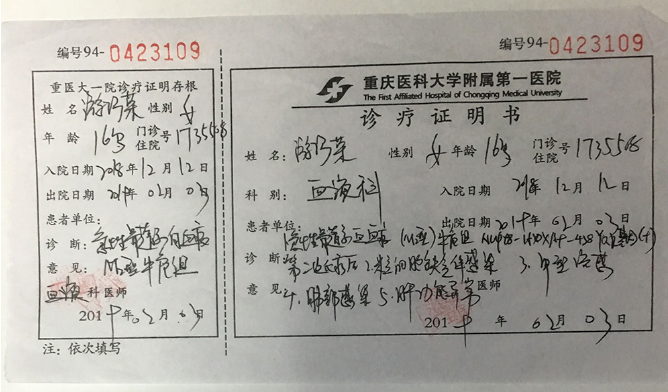 编号94-0423109
重医大一院诊疗证明存根
姓 名 性别 女
年 龄 16岁 门诊住院号 1735568
入院日期 2018年12月12日
出院日期 2019年02月03日
患者单位:
诊 断:急性髓系白血病
意 见:M5型 中危组
血液 科 医师
2019年02月03日
注:依次填写
编号94-0423109
重庆医科大学附属第一医院
The First Affiliated Hospital of Chongqing Medical University
诊 疗 证 明 书
姓 名: 性别 女 年龄 16岁 门诊住院号 1735568
科 别: 血液科 入院日期 2018年12月12日
患者单位: 出院日期 2019年02月03日
诊 断:急性髓系白血病 中危组
第二次化疗后 2.粒细胞缺乏伴感染 3.
意 见:4.肺部感染 5.肝功能异常
医师
2019年02月03日